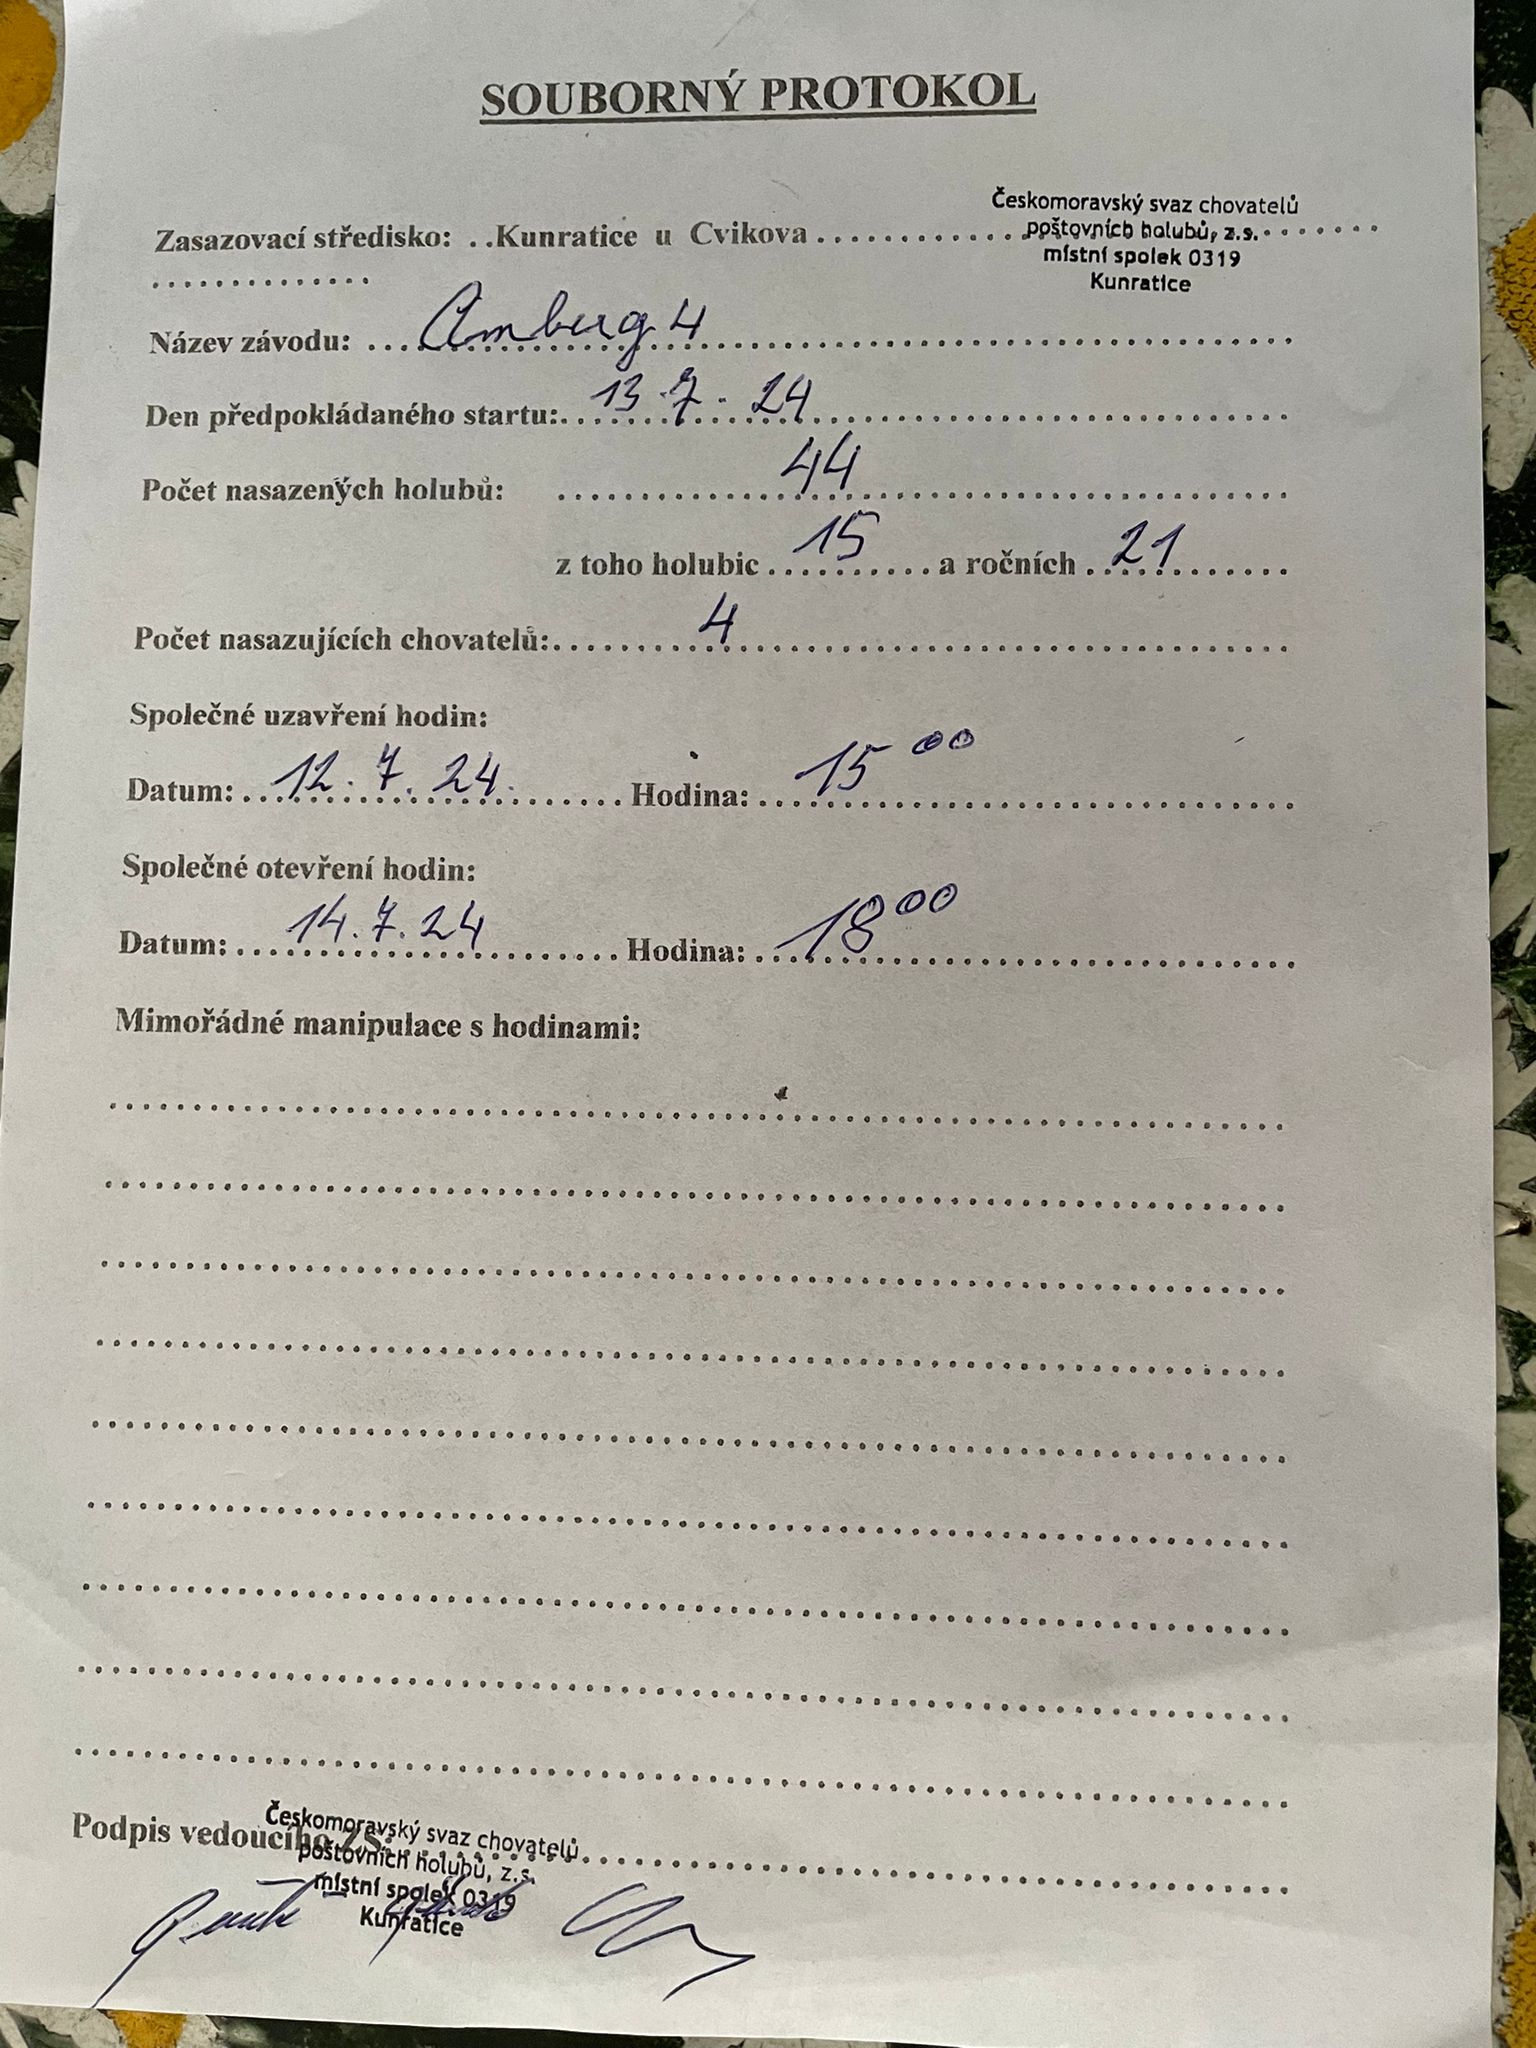 SOUBORNÝ PROTOKOL
Českomoravský svaz chovatelů
Zasazovací středisko: ..Kunratice u Cvikova
poštovních holubů, z.s.
místní spolek 0319
Kunratice
Název závodu: Amberg 4
Den předpokládaného startu: 13.7.24
Počet nasazených holubů: 44
z toho holubic 15 a ročních 21
Počet nasazujících chovatelů: 4
Společné uzavření hodin:
Datum: 12.7.24. Hodina: 15 00
Společné otevření hodin:
Datum: 14.7.24 Hodina: 18 00
Mimořádné manipulace s hodinami:
Podpis vedoucího ZS:
Českomoravský svaz chovatelů
poštovních holubů, z.s.
místní spolek 0319
Kunratice